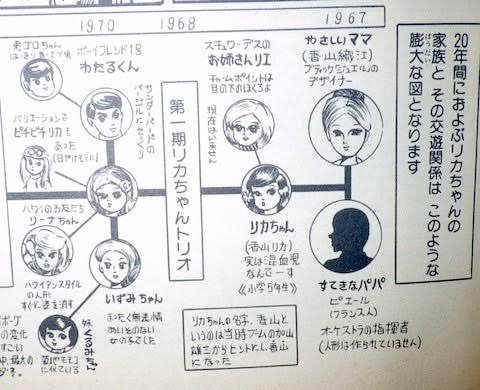 1970
1968
1967
20年間におよぶリカちゃんの
家族と その交遊関係は このような
膨大な図となります
ぼうだい
やさしいママ
(香山織江)
ブティックジュエルの
デザイナー
すてきなパパ
ピエール
(フランス人)
オーケストラの指揮者
(人形は作られていません)
スチュワーデスの
お姉さんリエ
チャームポイントは
目の下のほくろよ
現在は
いません
リカちゃん
(香山リカ)
実は混血児
なんでーす
《小学5年生》
リカちゃんの名字、香山と
いうのは当時ブームの加山
雄三からヒントにし、香山
になった
第一期リカちゃんトリオ
ボーイフレンド1号
わたるくん
サンダーバードの
バージルにそっくり
弟ゴロちゃん
バリエーションで
ピチピチリカも
あった
(日やけモデル)
ハワイのお友だち
リーナちゃん
ハワイアンスタイル
の人形
すぐに姿を消す
いずみちゃん
まったく無表情
あいそのない
女の子でした
妹くるみちゃん
菊地モモコ
に似ている
の変化
すごい
中、最大の